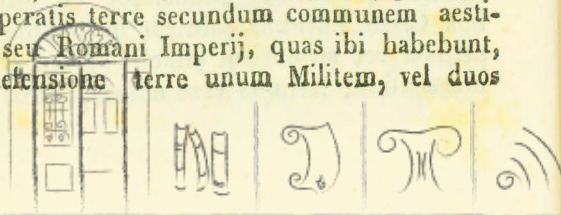 peratis terre secundum communem aesti-
seu Romani Imperij, quas ibi habebunt,
efensione terre unum Militem, vel duos